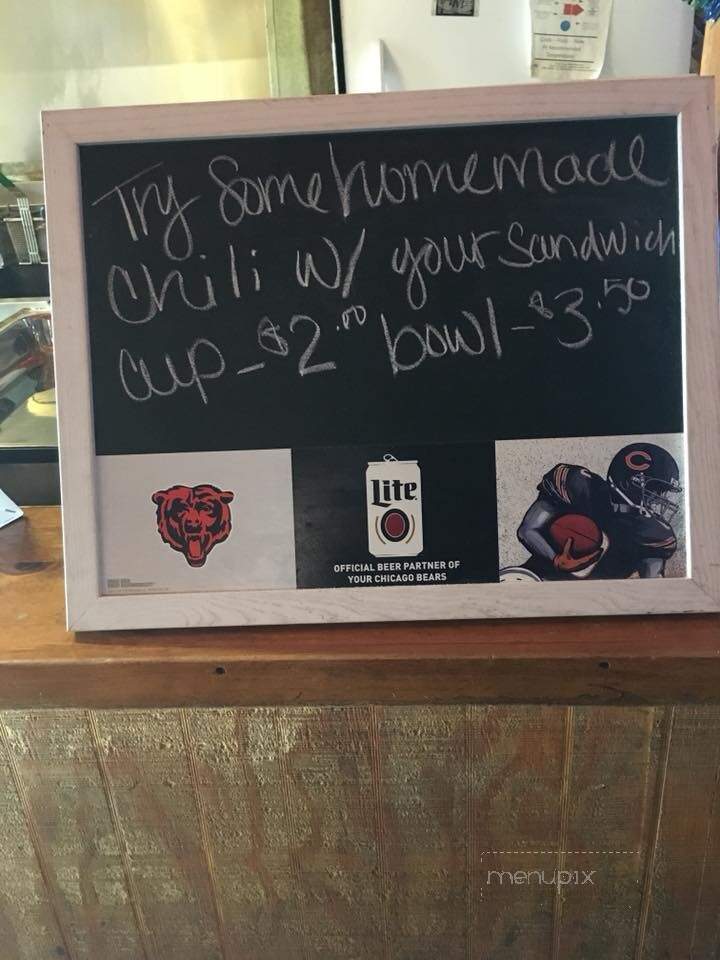 Try Some homemade
Chili w/ your Sandwich
cup - $2.00 bowl - $3.50
Lite
OFFICIAL BEER PARTNER OF
YOUR CHICAGO BEARS
C
menupix